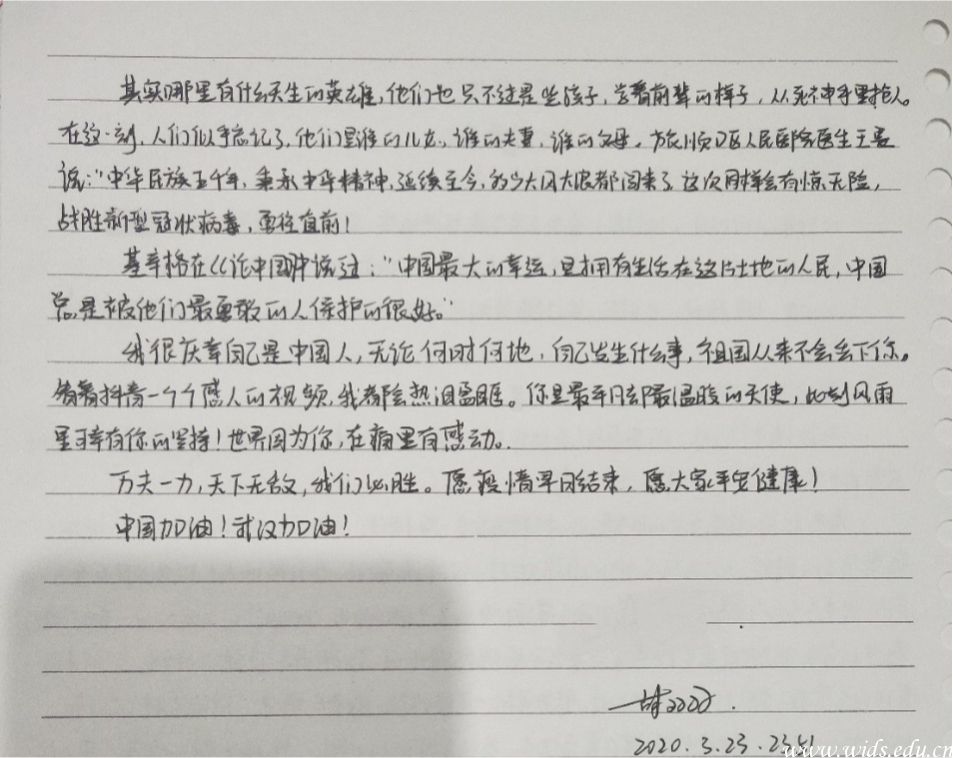 其实哪里有什么天生的英雄,他们也只不过是些孩子,学着前辈的样子,从死神手里抢人。
在这一刻,人们似乎忘记了,他们是谁的儿女,谁的夫妻,谁的父母。旅顺口区人民医院医生王
说:"中华民族五千年,秉承中华精神,延续至今,多少大风大浪都闯来了,这次同样会有惊无险,
战胜新型冠状病毒,勇往直前!
基辛格在《论中国》中说过:"中国最大的幸运,是拥有生活在这片土地的人民,中国
总是被他们最勇敢的人保护的很好。"
我很庆幸自己是中国人,无论何时何地,自己发生什么事,祖国从来不会丢下你。
看着抖音一个个感人的视频,我都会热泪盈眶。你是最平凡却最温暖的天使,此刻风雨
里有你的坚持!世界因为你,在病里有感动。
万夫一力,天下无敌,我们必胜。愿疫情早日结束,愿大家平安健康!
中国加油!武汉加油!
2020.3.23.23
www.wids.edu.cn